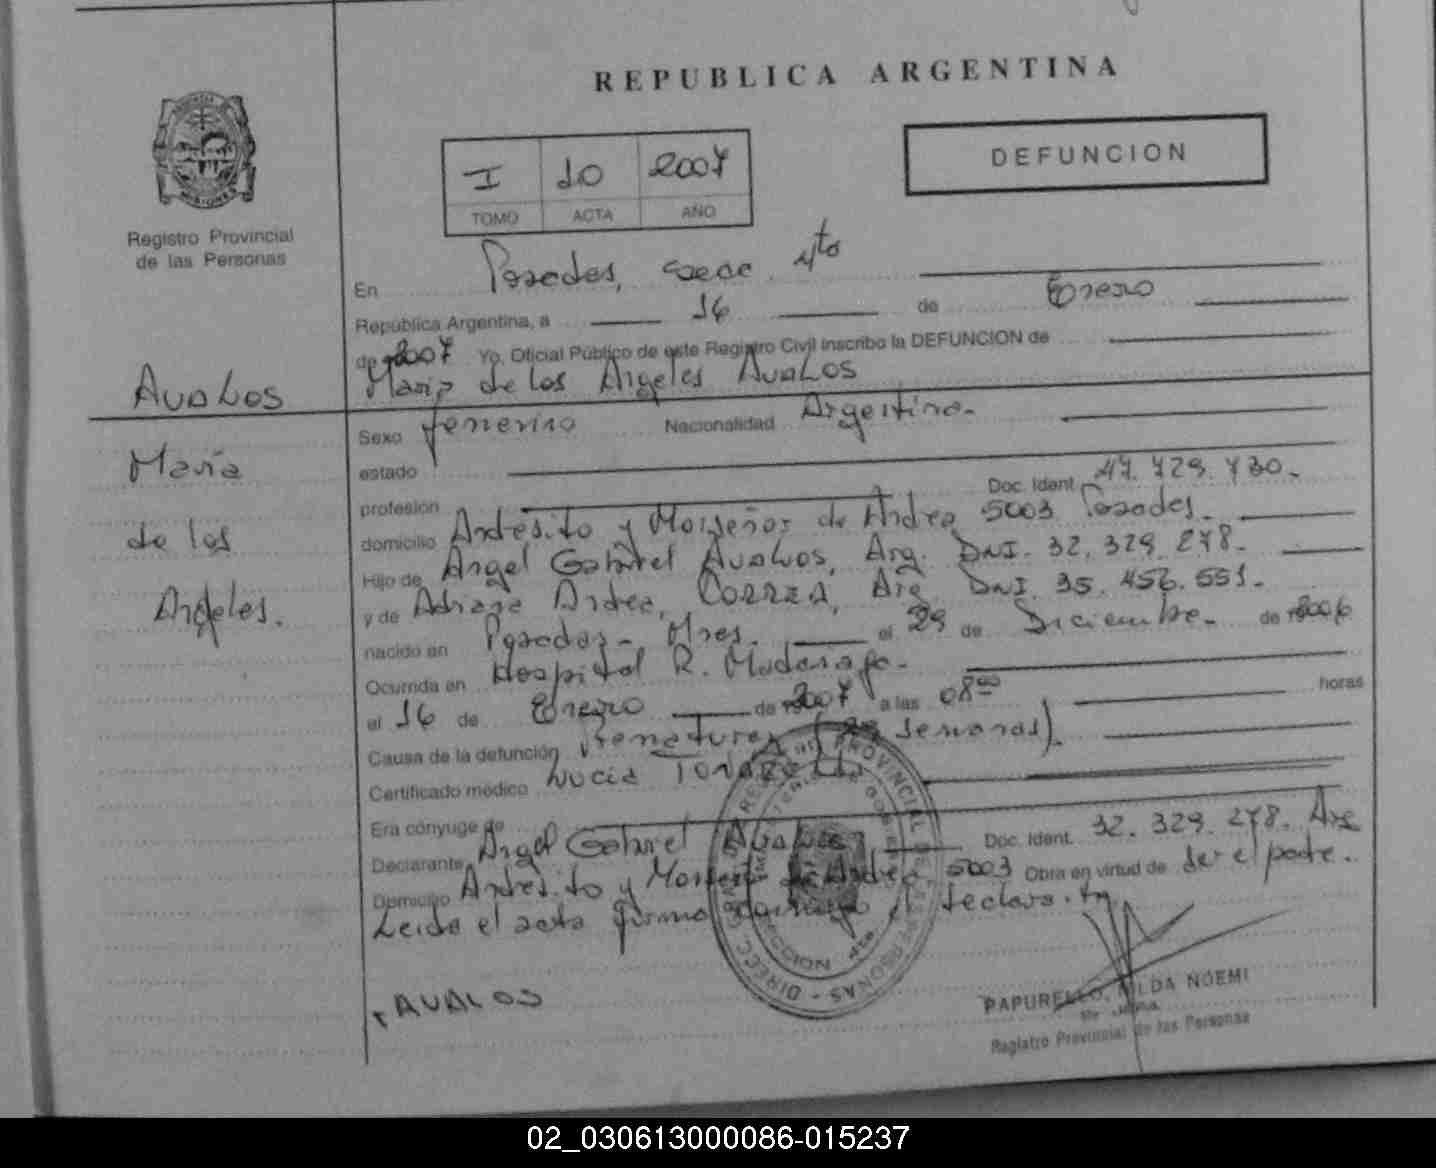 REPUBLICA ARGENTINA
DEFUNCION
I 10 2007
TOMO ACTA AÑO
Registro Provincial
de las Personas
En Posadas, secc 4to
República Argentina, a 16 de Enero
de 2007 Yo, Oficial Público de este Registro Civil inscribo la DEFUNCION de
María de los Angeles Avalos
Avalos
María
de los
Angeles.
Sexo femenino Nacionalidad Argentina.
estado
profesión Doc. Ident. 47.729.730.
domicilio Andresito y Monseñor de Andrea 5003 Posadas.
Hijo de Angel Gabriel Avalos, Arg. DNI. 32.329.278.
y de Adriana Andrea, CORREA, Arg DNI. 35.456.551.
nacido en Posadas - Mnes. el 29 de Diciembre. de 2006
Ocurrida en Hospital R. Madariaga.
el 16 de Enero de 2007 a las 08⁰⁰ horas
Causa de la defunción Prematurez ( semanas).
Certificado médico Lucia
Era cónyuge de
Declarante Angel Gabriel Avalos Doc. Ident. 32.329.278. Arg
Domicilio Andresito y Monseñor de Andrea 5003 Obra en virtud de ser el padre.
Leida el acta firma conmigo el declara.te
AVALOS
PAPURELLO, HILDA NOEMI
Registro Provincial de las Personas
02_030613000086-015237